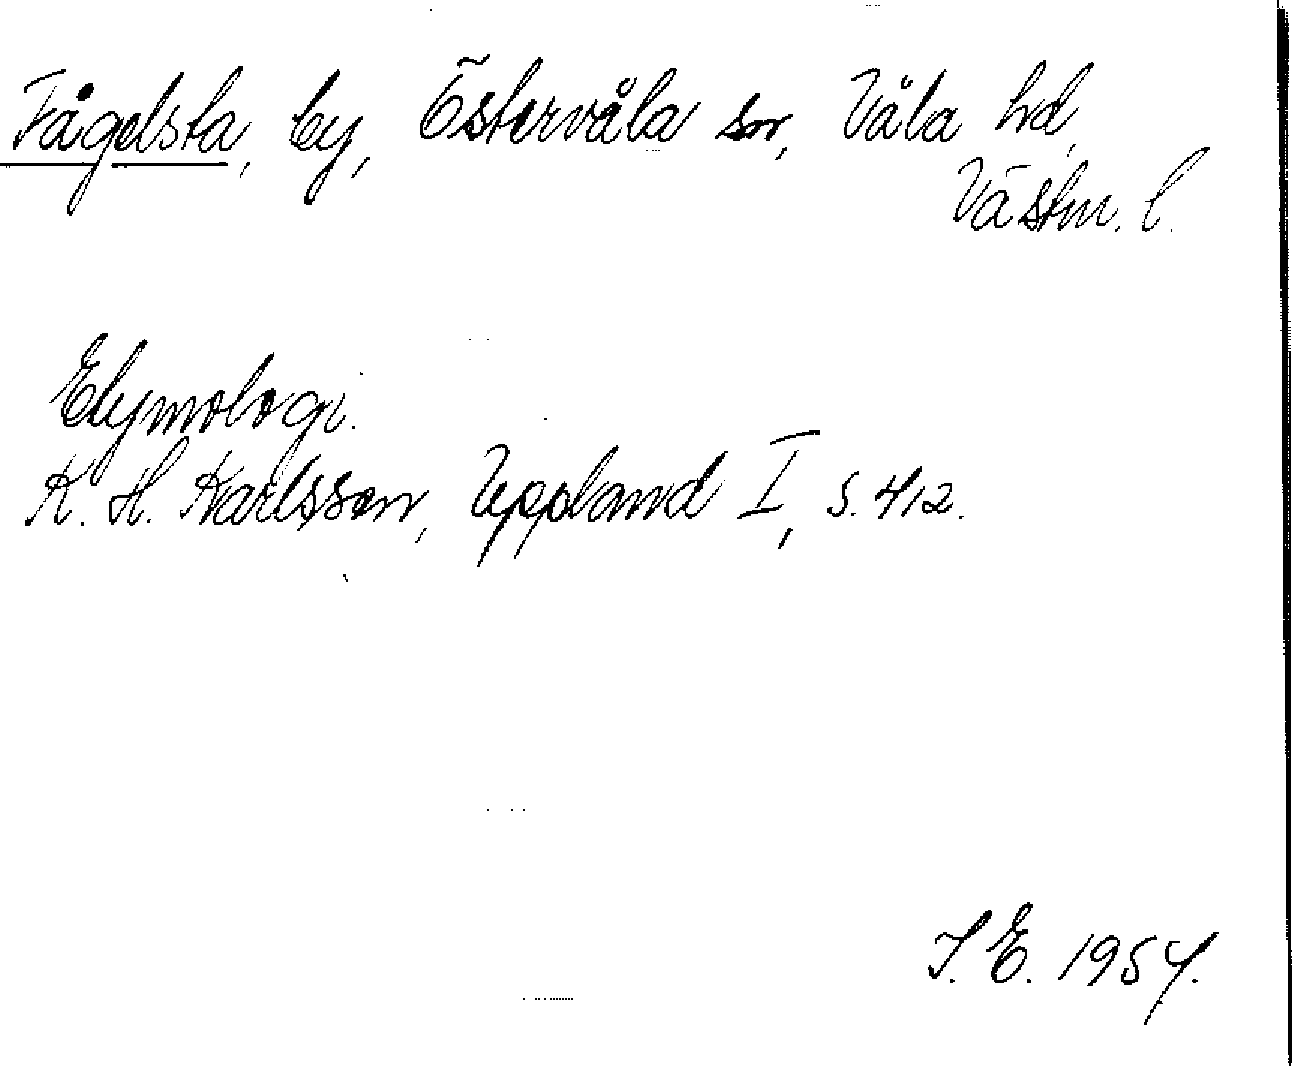 Fågelsta, by, Östervåla sn, Våla hd,
Västm. l.
Etymologi.
K. H. Karlsson, Uppland I, s. 412.
I. E. 1954.